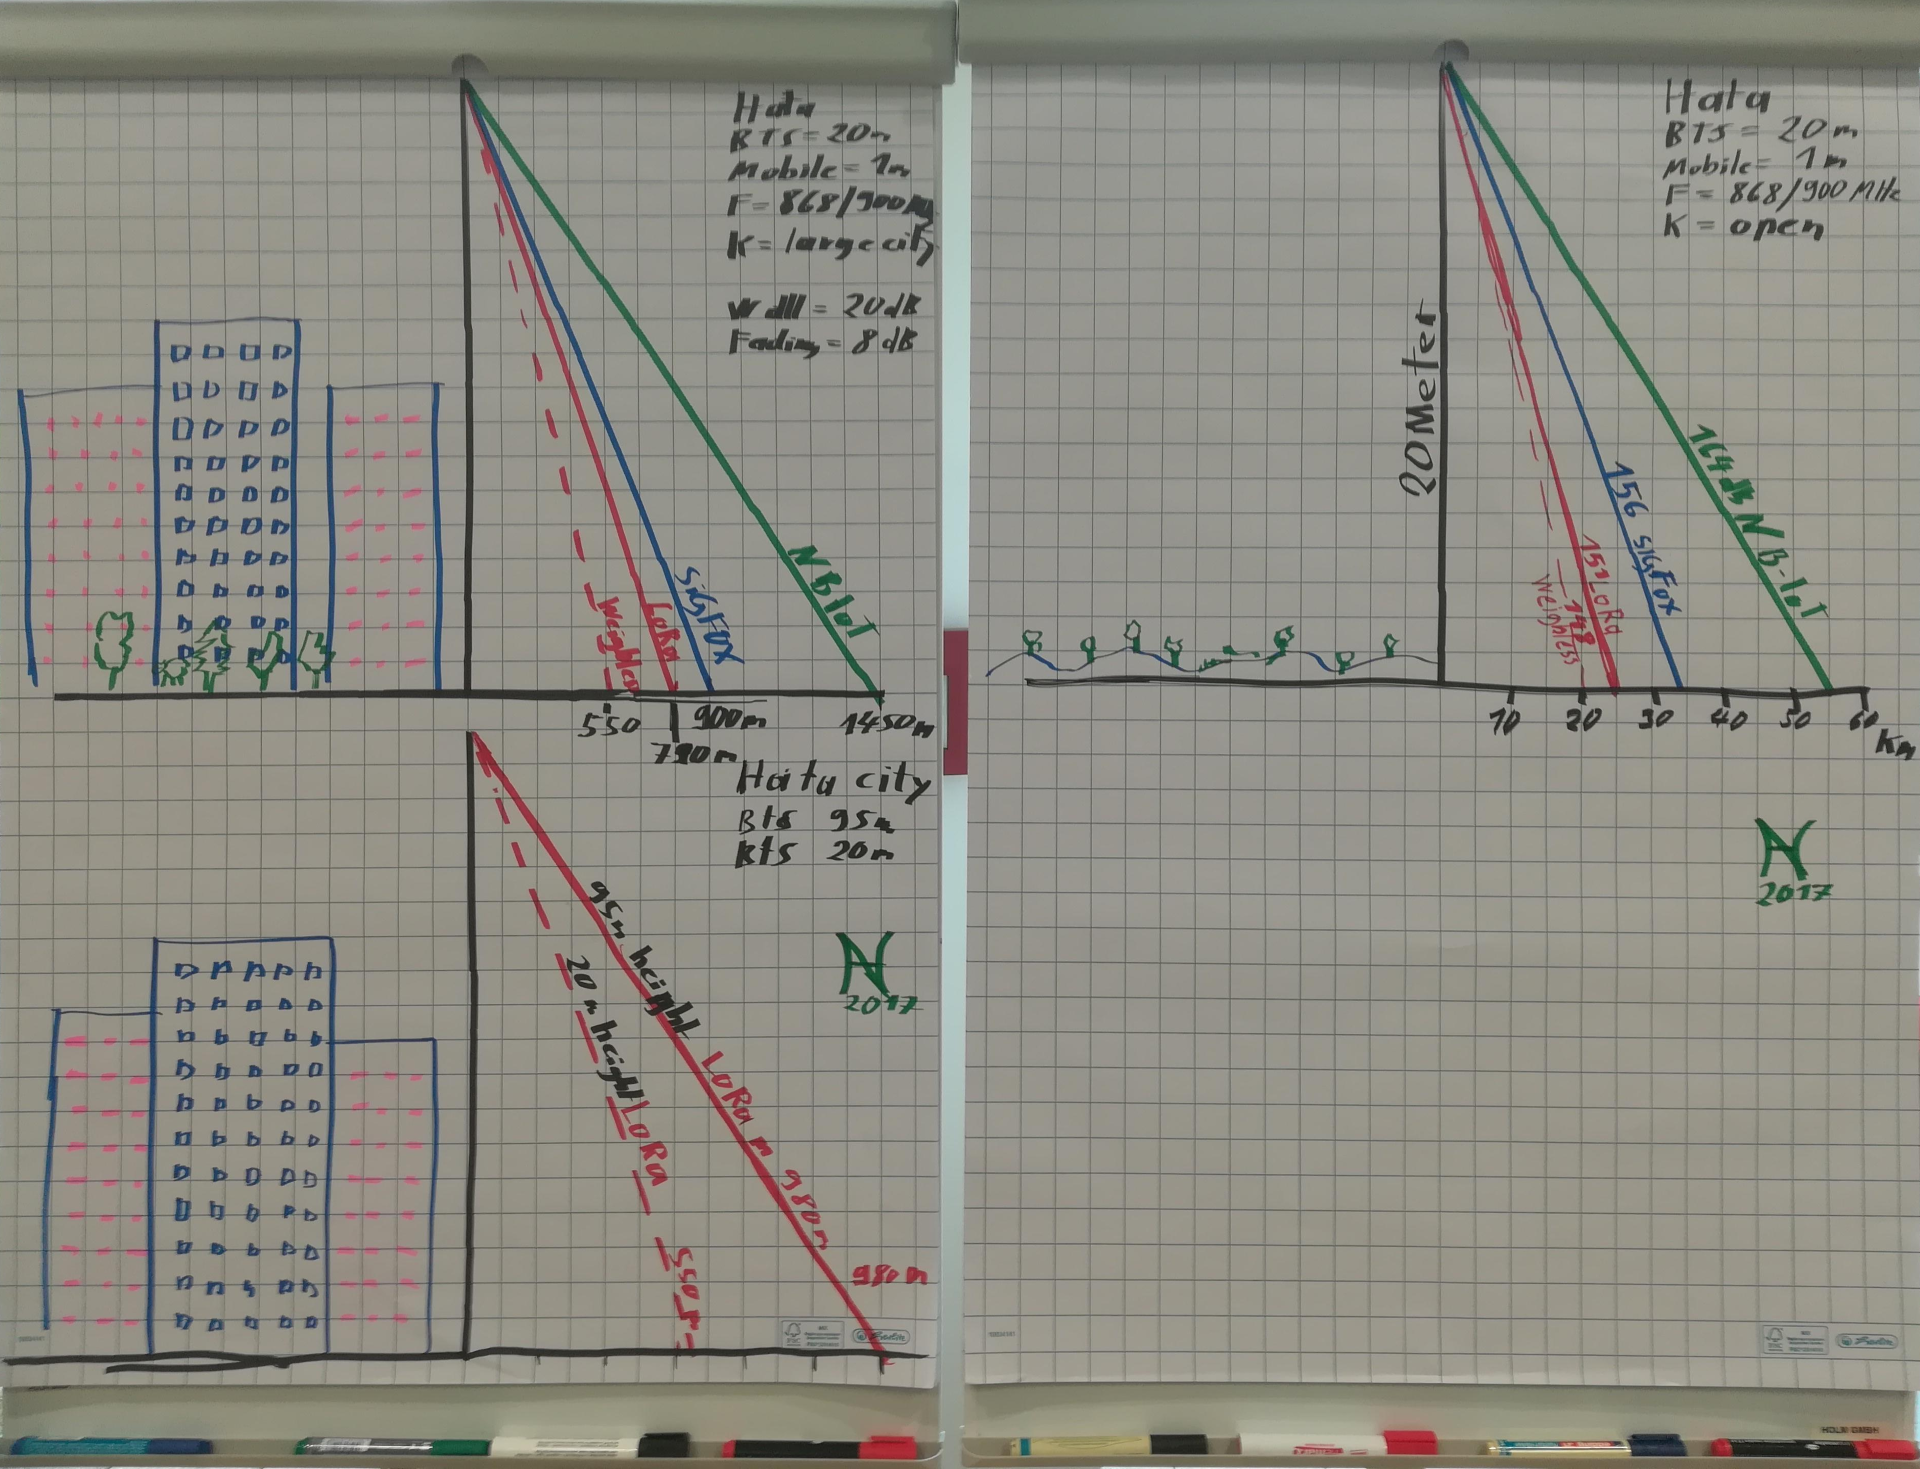 Hata
BTS = 20m
Mobile = 1m
F = 868/900
K = large city
Wall = 20dB
Fading = 8 dB
Weightless
LoRa
SigFOX
NB IoT
550
790m
900m
1450m
Hata city
Bts 95m
Bts 20m
95m height LoRa m 980m
20m height LoRa 550m
980m
2017
Hata
BTS = 20m
Mobile = 1m
F = 868/900 MHz
K = open
20 Meter
164 dB NB-IoT
156 SigFox
151 LoRa
148
Weightless
10 20 30 40 50 60
Km
2017
HOLM GMBH